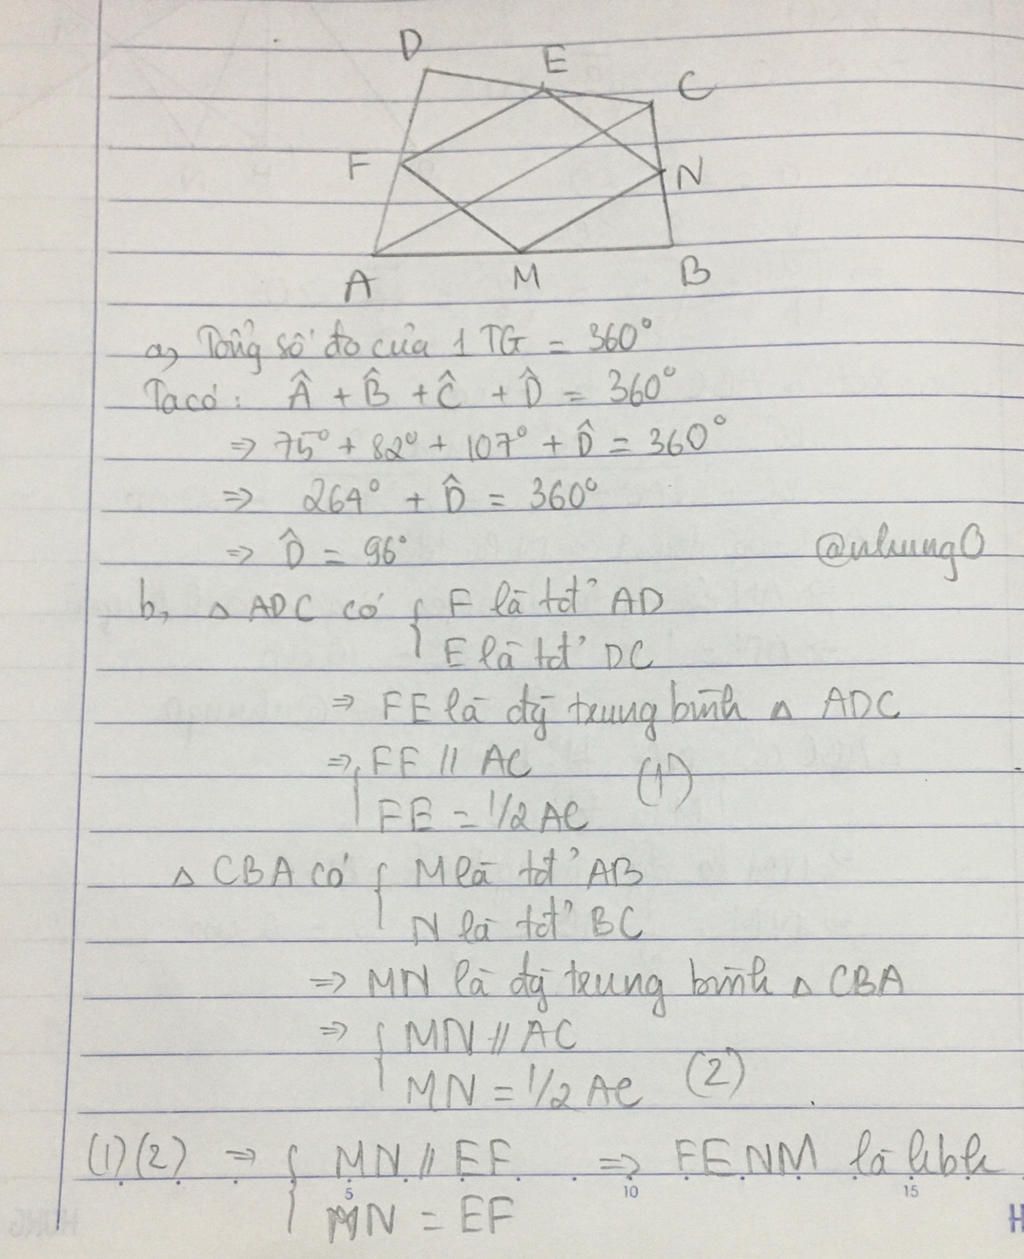 D
E
C
F
N
A
M
B
a, Tổng số đo của 1 TG = 360°
Ta có: Â + B̂ + Ĉ + D̂ = 360°
=> 75° + 82° + 107° + D̂ = 360°
=> 264° + D̂ = 360°
=> D̂ = 96°
@nhung0
b, △ ADC có { F là tđ' AD
E là tđ' DC
=> FE là đg trung bình △ ADC
=> { FF // AC (1)
FE = 1/2 AC
△ CBA có { M là tđ' AB
N là tđ' BC
=> MN là đg trung bình △ CBA
=> { MN // AC
MN = 1/2 AC (2)
(1)(2) => { MN // EF => FENM là hbh
5 10 15
MN = EF
H